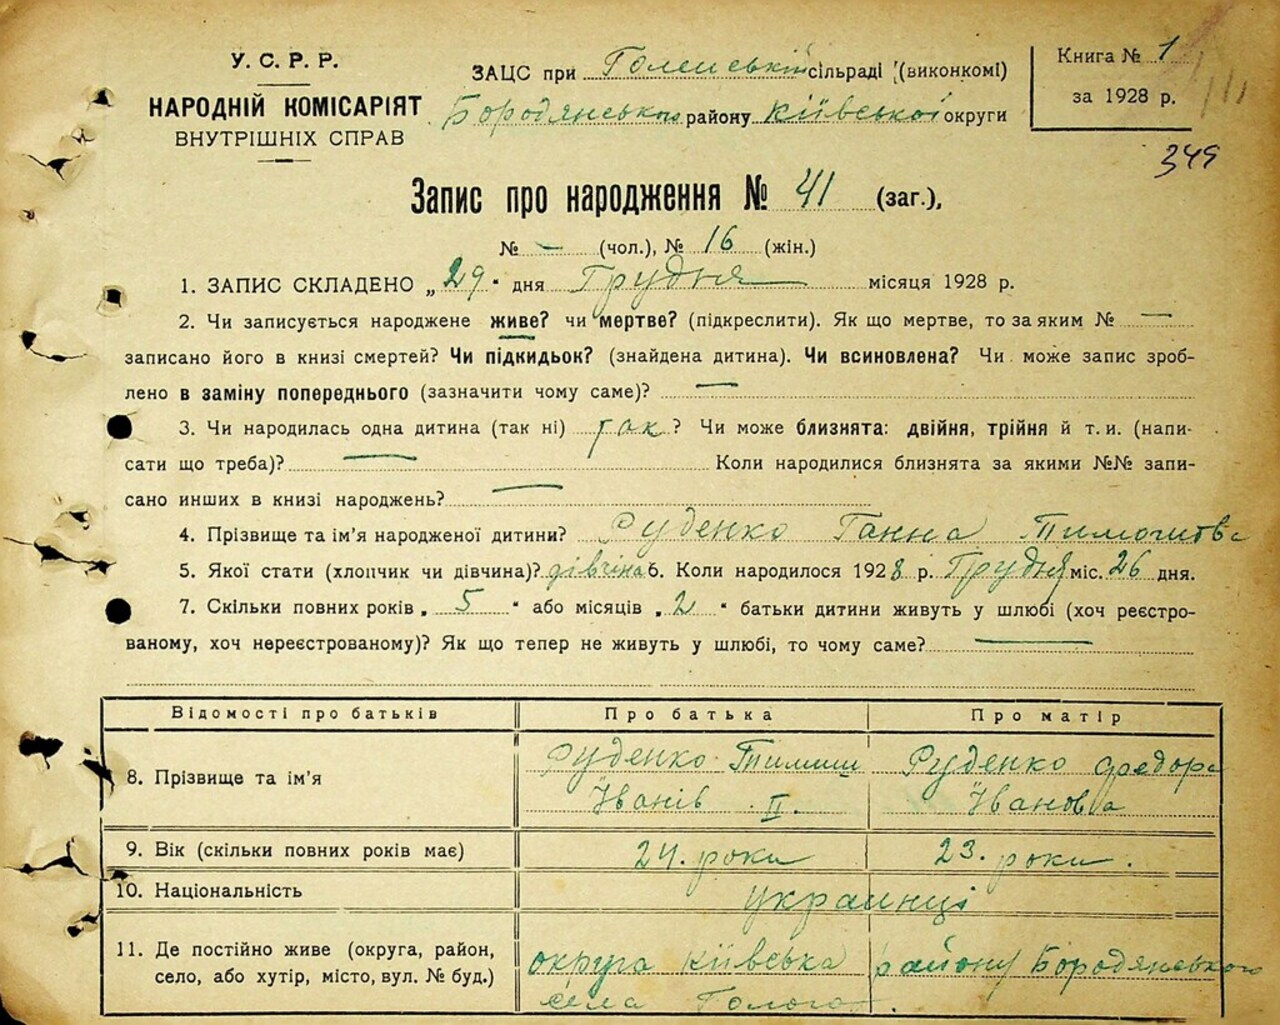 У. С. Р. Р.
НАРОДНІЙ КОМІСАРІЯТ
ВНУТРІШНІХ СПРАВ
ЗАЦС при сільраді (виконкомі)
Бородянського району Київської округи
Книга № 1
за 1928 р.
349
Запис про народження № 41 (заг.),
№ — (чол.), № 16 (жін.)
1. ЗАПИС СКЛАДЕНО „29" дня Грудня місяця 1928 р.
2. Чи записується народжене живе? чи мертве? (підкреслити). Як що мертве, то за яким № —
записано його в книзі смертей? Чи підкидьок? (знайдена дитина). Чи всиновлена? Чи може запис зроб-
лено в заміну попереднього (зазначити чому саме)? —
3. Чи народилась одна дитина (так ні) так? Чи може близнята: двійня, трійня й т. и. (напи-
сати що треба)? — Коли народилися близнята за якими №№ запи-
сано инших в книзі народжень? —
4. Прізвище та ім'я народженої дитини? Руденко Ганна
5. Якої стати (хлопчик чи дівчина)? дівчина 6. Коли народилося 1928 р. Грудня міс. 26 дня.
7. Скільки повних років „5" або місяців „2" батьки дитини живуть у шлюбі (хоч реєстро-
ваному, хоч нереєстрованому)? Як що тепер не живуть у шлюбі, то чому саме? —
Відомості про батьків Про батька Про матір
8. Прізвище та ім'я
Руденко Тимиш
Іванів II.
Руденко Федора
Іванова
9. Вік (скільки повних років має) 24. роки 23. роки.
10. Національність украинці
11. Де постійно живе (округа, район,
село, або хутір, місто, вул. № буд.)
округа Київська району Бородянського
села